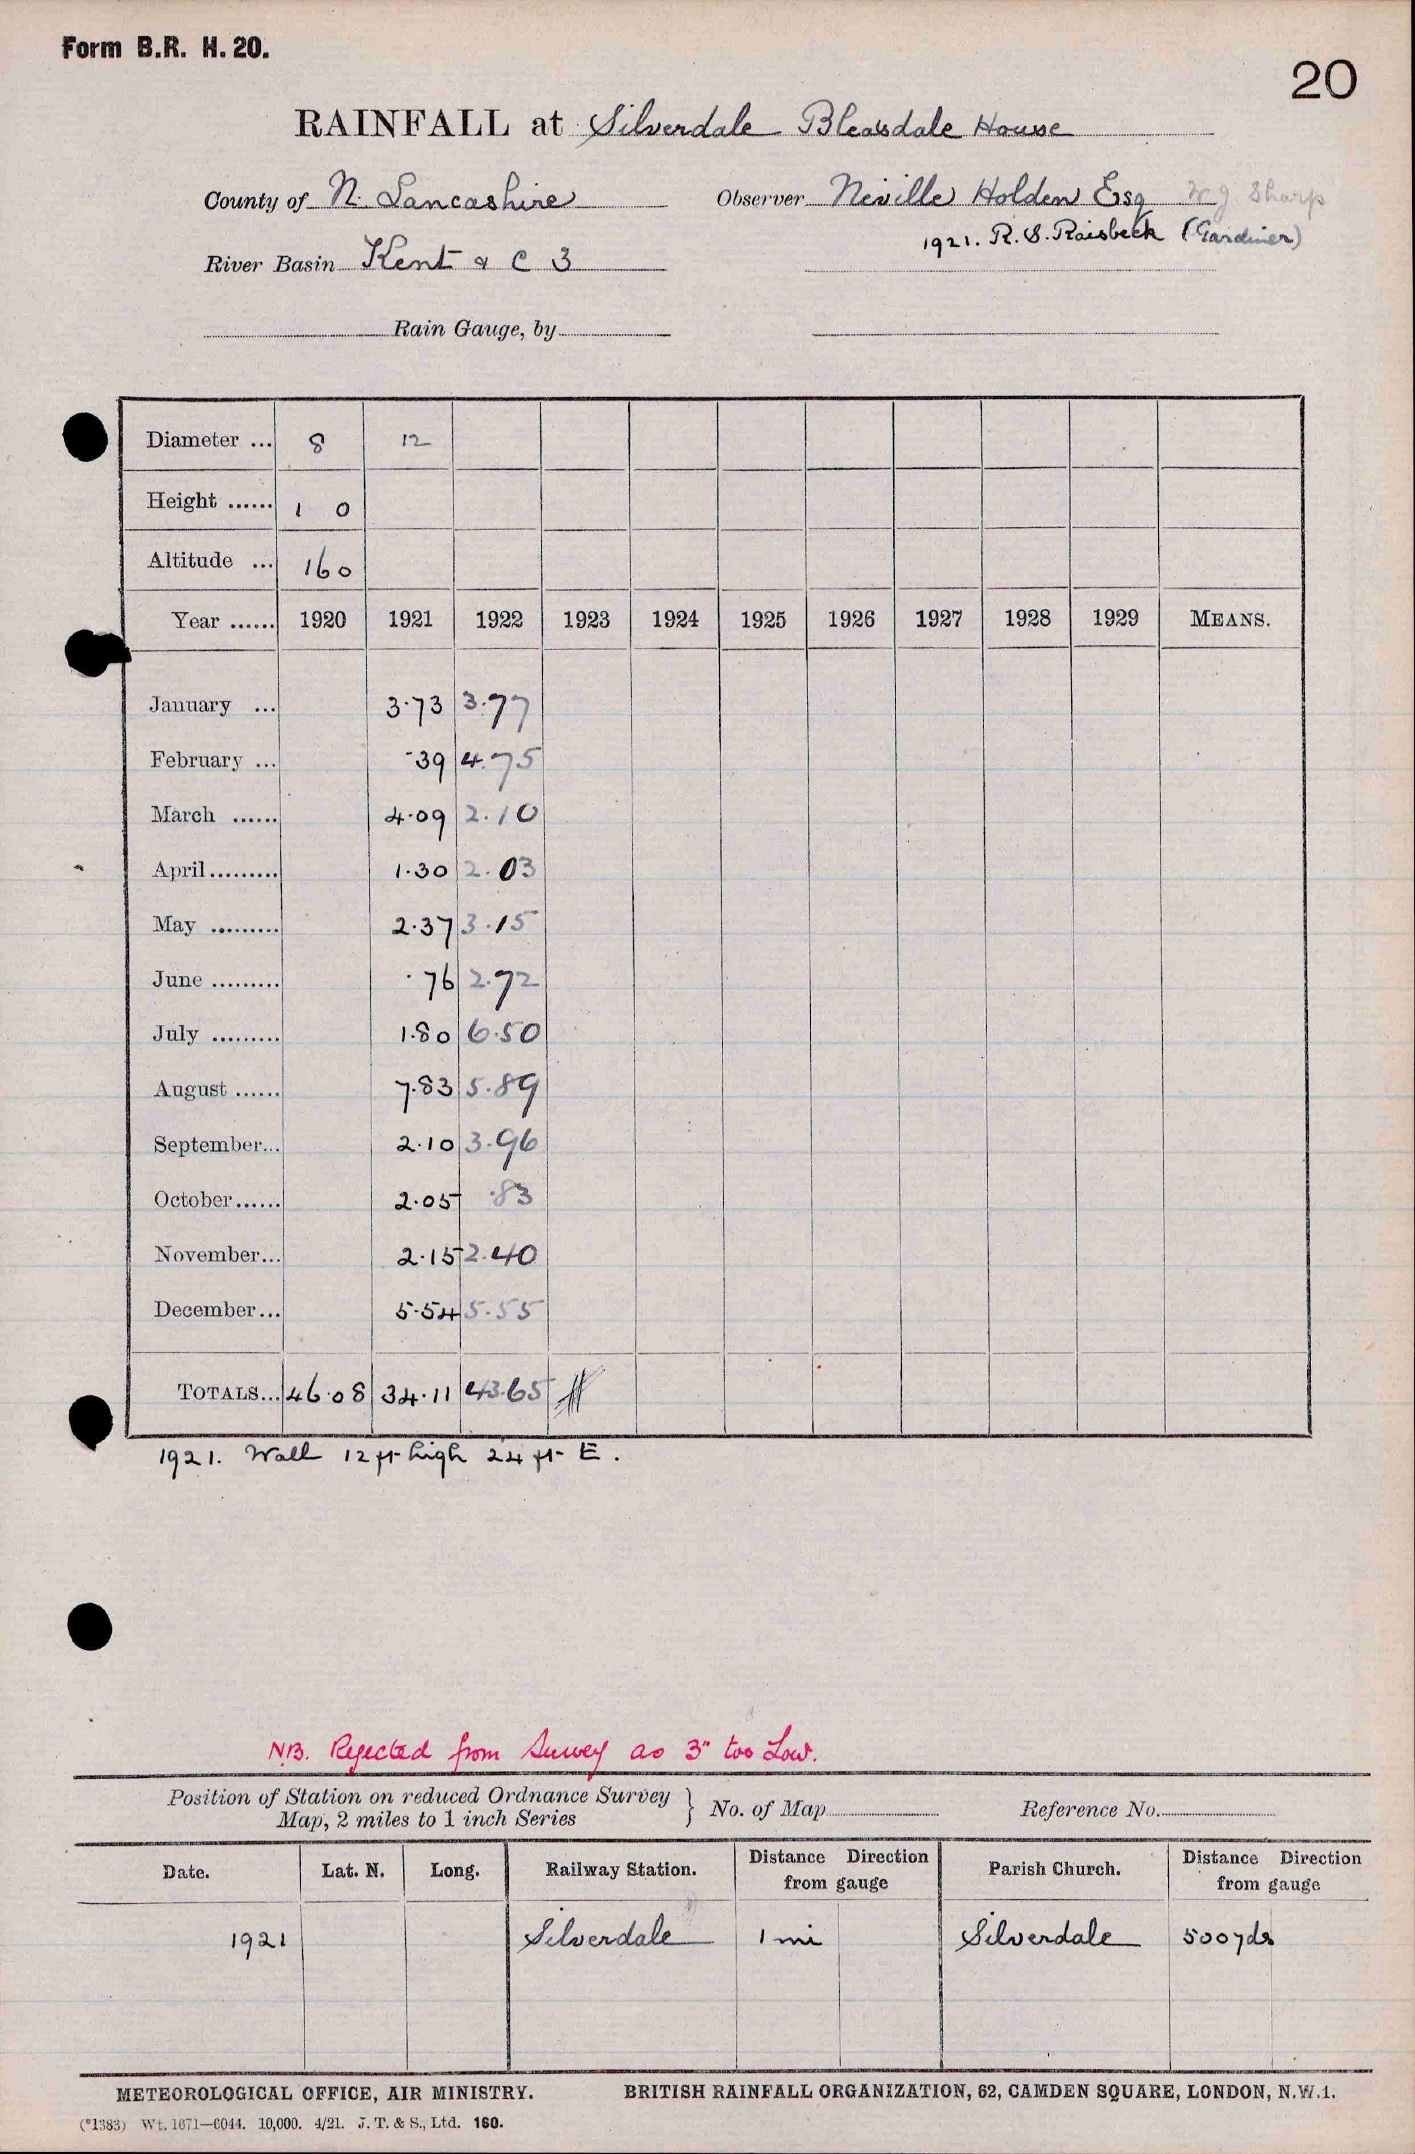 Form B.R. H. 20.
20
RAINFALL at Silverdale Bleasdale House
County of N. Lancashire Observer Neville Holden Esq W J Sharp
1921. R. S. Raisbeck (Gardiner)
River Basin Kent & C 3
Rain Gauge, by
Diameter ... 8 12
Height ...... 1 0
Altitude ... 160
Year ...... 1920 1921 1922 1923 1924 1925 1926 1927 1928 1929 MEANS.
January ... 3.73 3.77
February ... .39 4.75
March ...... 4.09 2.10
April ......... 1.30 2.03
May ......... 2.37 3.15
June ......... .76 2.72
July ......... 1.80 6.50
August ...... 7.83 5.89
September... 2.10 3.96
October ...... 2.05 .83
November... 2.15 2.40
December... 5.54 5.55
TOTALS... 46.08 34.11 43.65
1921. Wall 12 ft high 24 ft E.
NB. Rejected from Survey as 3" too Low.
Position of Station on reduced Ordnance Survey
Map, 2 miles to 1 inch Series } No. of Map Reference No.
Date. Lat. N. Long. Railway Station. Distance Direction from gauge Parish Church. Distance Direction from gauge
1921 Silverdale 1 mi Silverdale 500 yds
METEOROLOGICAL OFFICE, AIR MINISTRY. BRITISH RAINFALL ORGANIZATION, 62, CAMDEN SQUARE, LONDON, N.W.1.
(*1383) Wt. 1671—6044. 10,000. 4/21. J. T. & S., Ltd. 160.